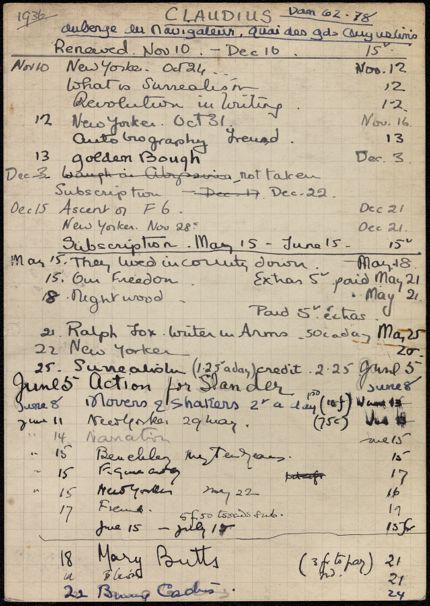 1936 CLAUDIUS Dan 62-78
auberge du Navigateur, quai des gds Augustins
Renewed. Nov 10 - Dec 10 15
Nov 10 New Yorker. Oct 24 Nov. 12
What is Surrealism 12
Revolution in Writing. 12
12 New Yorker. Oct 31. Nov. 16
Autobiography Freud. 13
13 Golden Bough Dec. 3
Dec 3 Waugh in Abyssinia not taken
Subscription Dec 17 Dec. 22
Dec 15 Ascent of F 6. Dec 21
New Yorker. Nov 28 Dec 21
Subscription. May 15 - June 15. 15
May 15. They lived in county down. May 18
15. Our Freedom Extras 5 paid May 21
18 Nightwood May 21
Paid 5 extras.
21. Ralph Fox. Writer in Arms 50c a day May 25
22 New Yorker 25
25. Surrealism (1.25 a day) credit 2.25 June 5
June 5 Action for Slander June 8
June 8 Movers & Shakers 2 a day
June 11 New Yorker 29 May. (75c)
" 14 Narration June 15
" 15 Benchley My Ten Years. 15
" 15 17
" 15 New Yorker May 22 16
17 17
June 15 - July 15 15fr
18 Mary Butts (3 fr to pay) 21
21
22 24